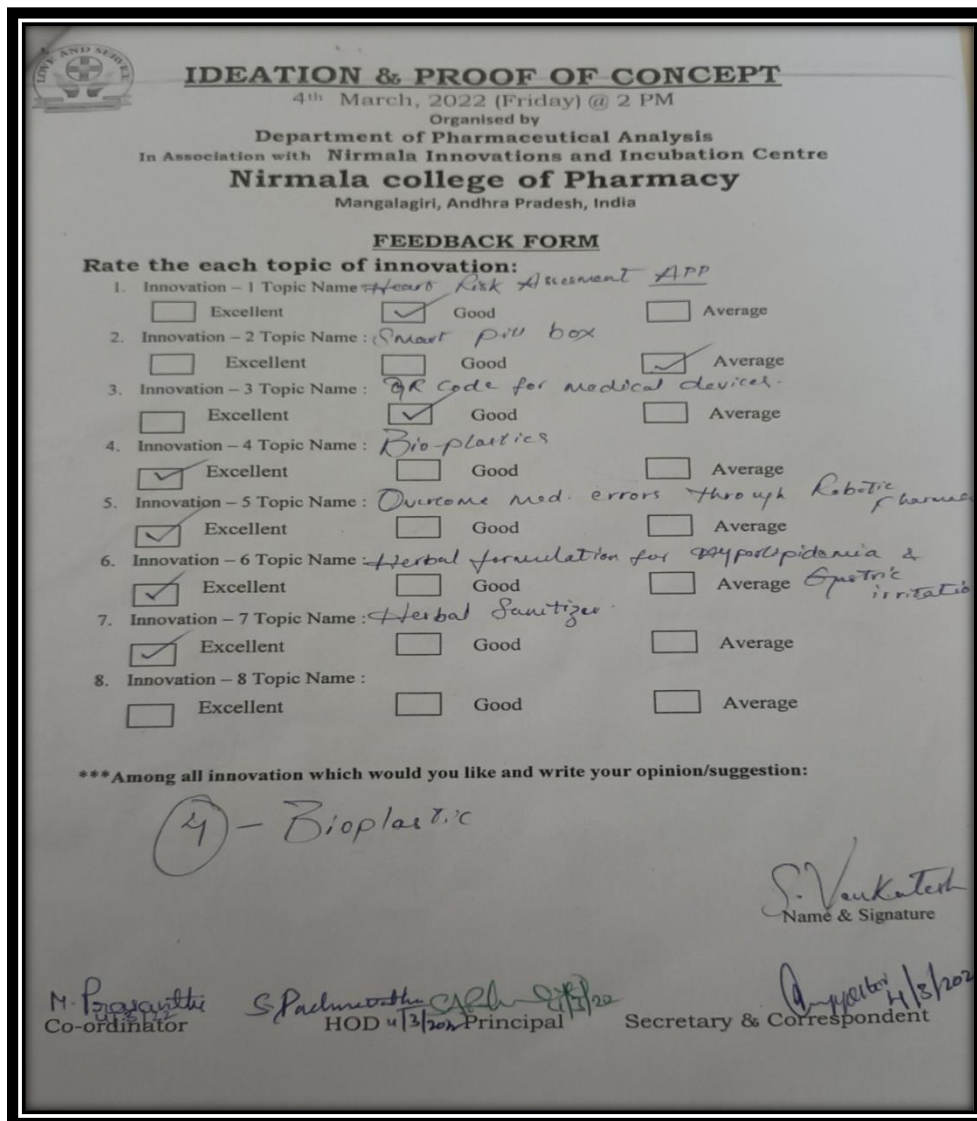 LOVE AND SERVE
IDEATION & PROOF OF CONCEPT
4th March, 2022 (Friday) @ 2 PM
Organised by
Department of Pharmaceutical Analysis
In Association with Nirmala Innovations and Incubation Centre
Nirmala college of Pharmacy
Mangalagiri, Andhra Pradesh, India
FEEDBACK FORM
Rate the each topic of innovation:
1. Innovation – 1 Topic Name Heart Risk Assesment APP
Excellent Good Average
2. Innovation – 2 Topic Name : Smart pill box
Excellent Good Average
3. Innovation – 3 Topic Name : QR Code for medical devices.
Excellent Good Average
4. Innovation – 4 Topic Name : Bio-plastics
Excellent Good Average
5. Innovation – 5 Topic Name : Overcome med. errors through Robotic
Excellent Good Average
6. Innovation – 6 Topic Name : Herbal formulation for Hyperlipidemia &
Excellent Good Average Gastric
irritatio
7. Innovation – 7 Topic Name : Herbal Sanitizer
Excellent Good Average
8. Innovation – 8 Topic Name :
Excellent Good Average
***Among all innovation which would you like and write your opinion/suggestion:
4 – Bioplastic
S. Venkatesh
Name & Signature
M. Prasanthi
Co-ordinator HOD 4/3/202 Principal Secretary & Correspondent 4/3/202